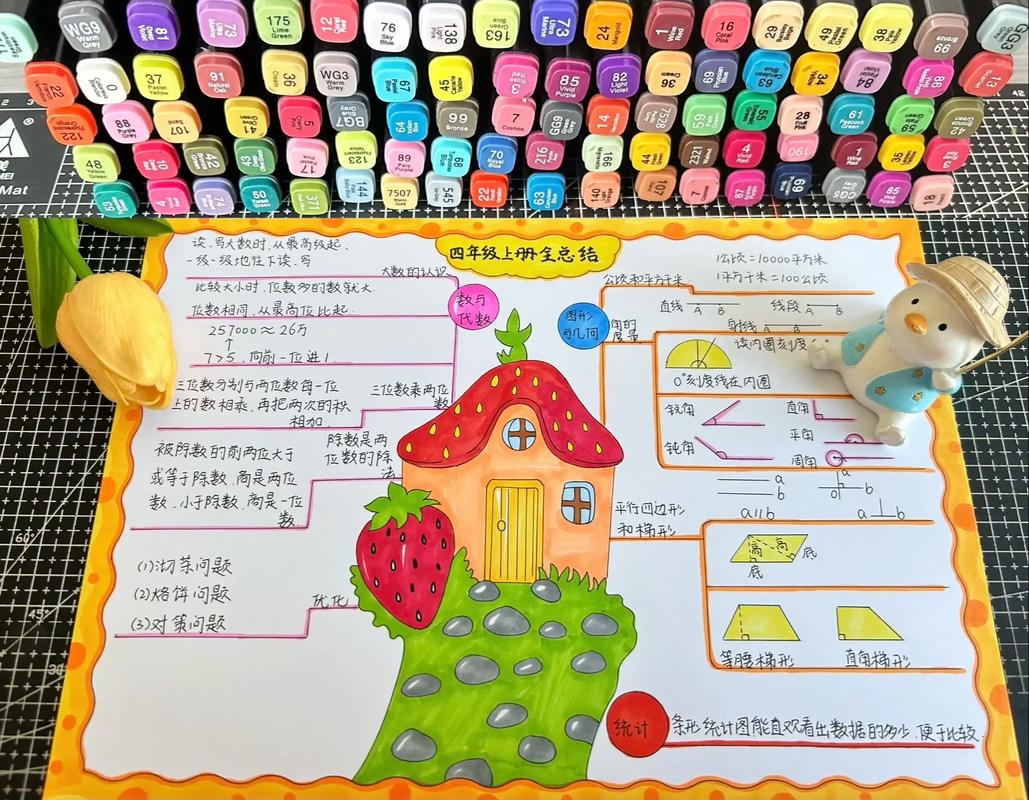 WG9
Warm
Grey
81
Deep
Violet
73
Ultra
Marine
175
Lime
Green
12
Coral
Red
76
Sky
Blue
138
Light
Pink
163
73
Ultra
Marine
24
Marigold
1
Wine
Red
16
Coral
Pink
29
Barely
Beige
49
Pastel
Green
38
99
Bronze
GG3
22
0
37
Pastel
Yellow
91
Natural
Oak
36
Cream
WG3
Warm
Grey
67
45
Canaria
Yellow
3
Rose
Red
85
Vivid
Purple
82
Light
Violet
36
Cream
69
63
Cerulean
Blue
34
Yellow
84
Pastel
Violet
86
Vivid
Pink
13
122
88
Purple
Grey
107
Sand
41
5
Cherry
Pink
BG7
64
Indian
Blue
99
Bronze
7
Cosmos
GG9
Green
Grey
14
Vermilion
7528
59
Pale
Green
55
28
Fruit
Pink
61
Peacock
Green
59
Pale
Green
42
48
10
42
43
17
Pastel
Pink
123
89
Pale
Purple
68
Turquoise
Blue
70
Royal
Blue
216
166
44
Fresh
Green
2321
Walnut
4
Vivid
Red
190
1
Wine
Red
35
Lemon
Yellow
63
4
Vivid
Red
74
50
Forest
Green
371
144
7507
Warm
Gold
545
22
63
Cerulean
Blue
140
107
7
Cosmos
87
69
GG5
85
Vivid
Purple
18
美
Mat
四年级上册全总结
数与
代数
读、写大数时,从最高级起,
一级一级地往下读、写
大数的认识
比较大小时,位数多的数就大
位数相同,从最高位比起
257000≈26万
↑
7>5,向前一位进1
三位数分别与两位数每一位
上的数相乘,再把两次的积
相加
三位数乘两位
数
被除数的前两位大于
或等于除数,商是两位
数,小于除数,商是一位
数
除数是两
位数的除
法
(1)沏茶问题
(2)烙饼问题
(3)对策问题
优化
图形
与几何
1公顷=10000平方米
1平方千米=100公顷
公顷和平方千米
直线 A B
线段 A B
射线 A B
角的
度量
读内圈刻度
0°刻度线在内圈
锐角
直角
钝角
平角
周角
a
b
a//b
a
b
a⊥b
平行四边形
和梯形
高
高
底
底
等腰梯形
直角梯形
统计
条形统计图能直观看出数据的多少,便于比较.
60°
45°